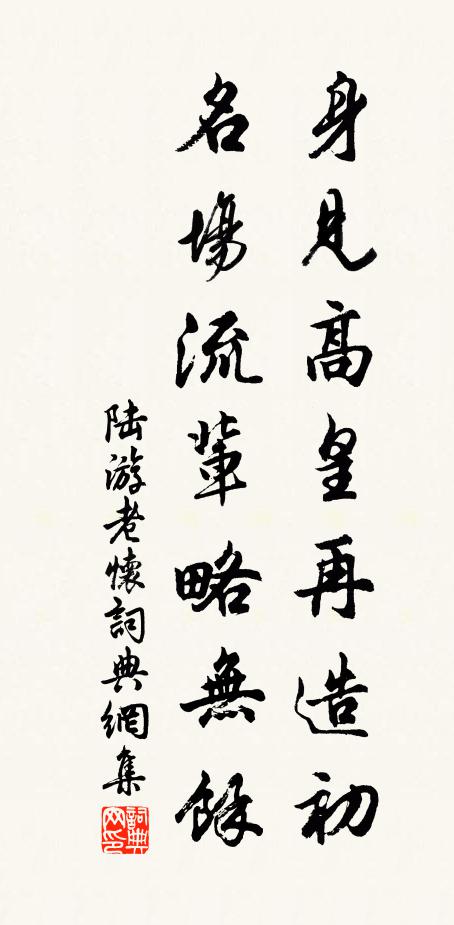 身見高皇再造初
名場流輩略無餘
陸游老懷詞典網集
詞典網印